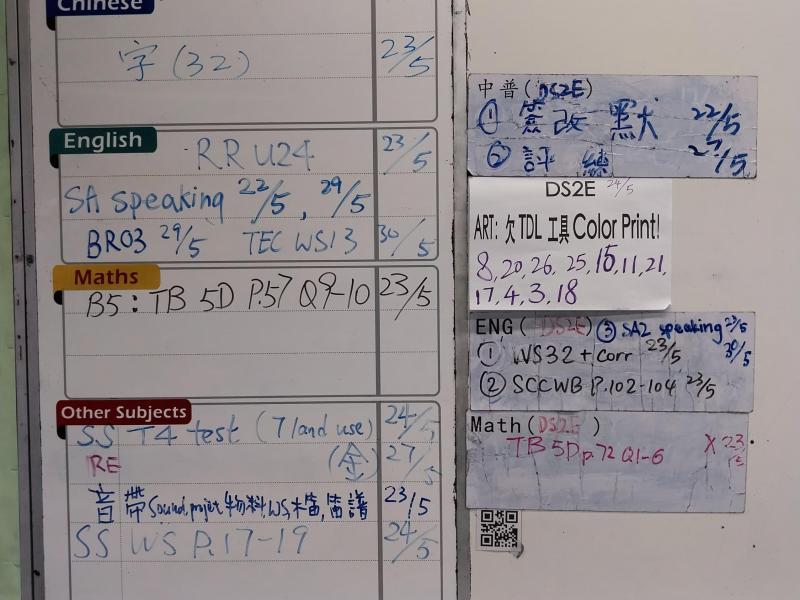 Chinese
字 (32) 23/5
English
RR U24 23/5
SA speaking 22/5, 29/5
BR03 29/5 TEC WS13 30/5
Maths
B5: TB 5D P.57 Q9-10 23/5
Other Subjects
SS T4 test (7 land use) 24/5
RE (金) 27/5
音 帶 Sound projet 物料, WS, 木笛, 笛譜 23/5
SS WS P.17-19 24/5
中普(DS2E)
① 憲改 默 22/5
② 評 27/5
DS2E 24/5
ART: 欠 TDL 工具 Color Print!
8, 20, 26, 25, 15, 11, 21,
17, 4, 3, 18
ENG (DS2E) ③ SA2 speaking 23/5
① WS32 + corr 23/5 30/5
② SCCWB P.102-104 23/5
Math (DS2E)
TB 5D p.72 Q1-6 X 23/5